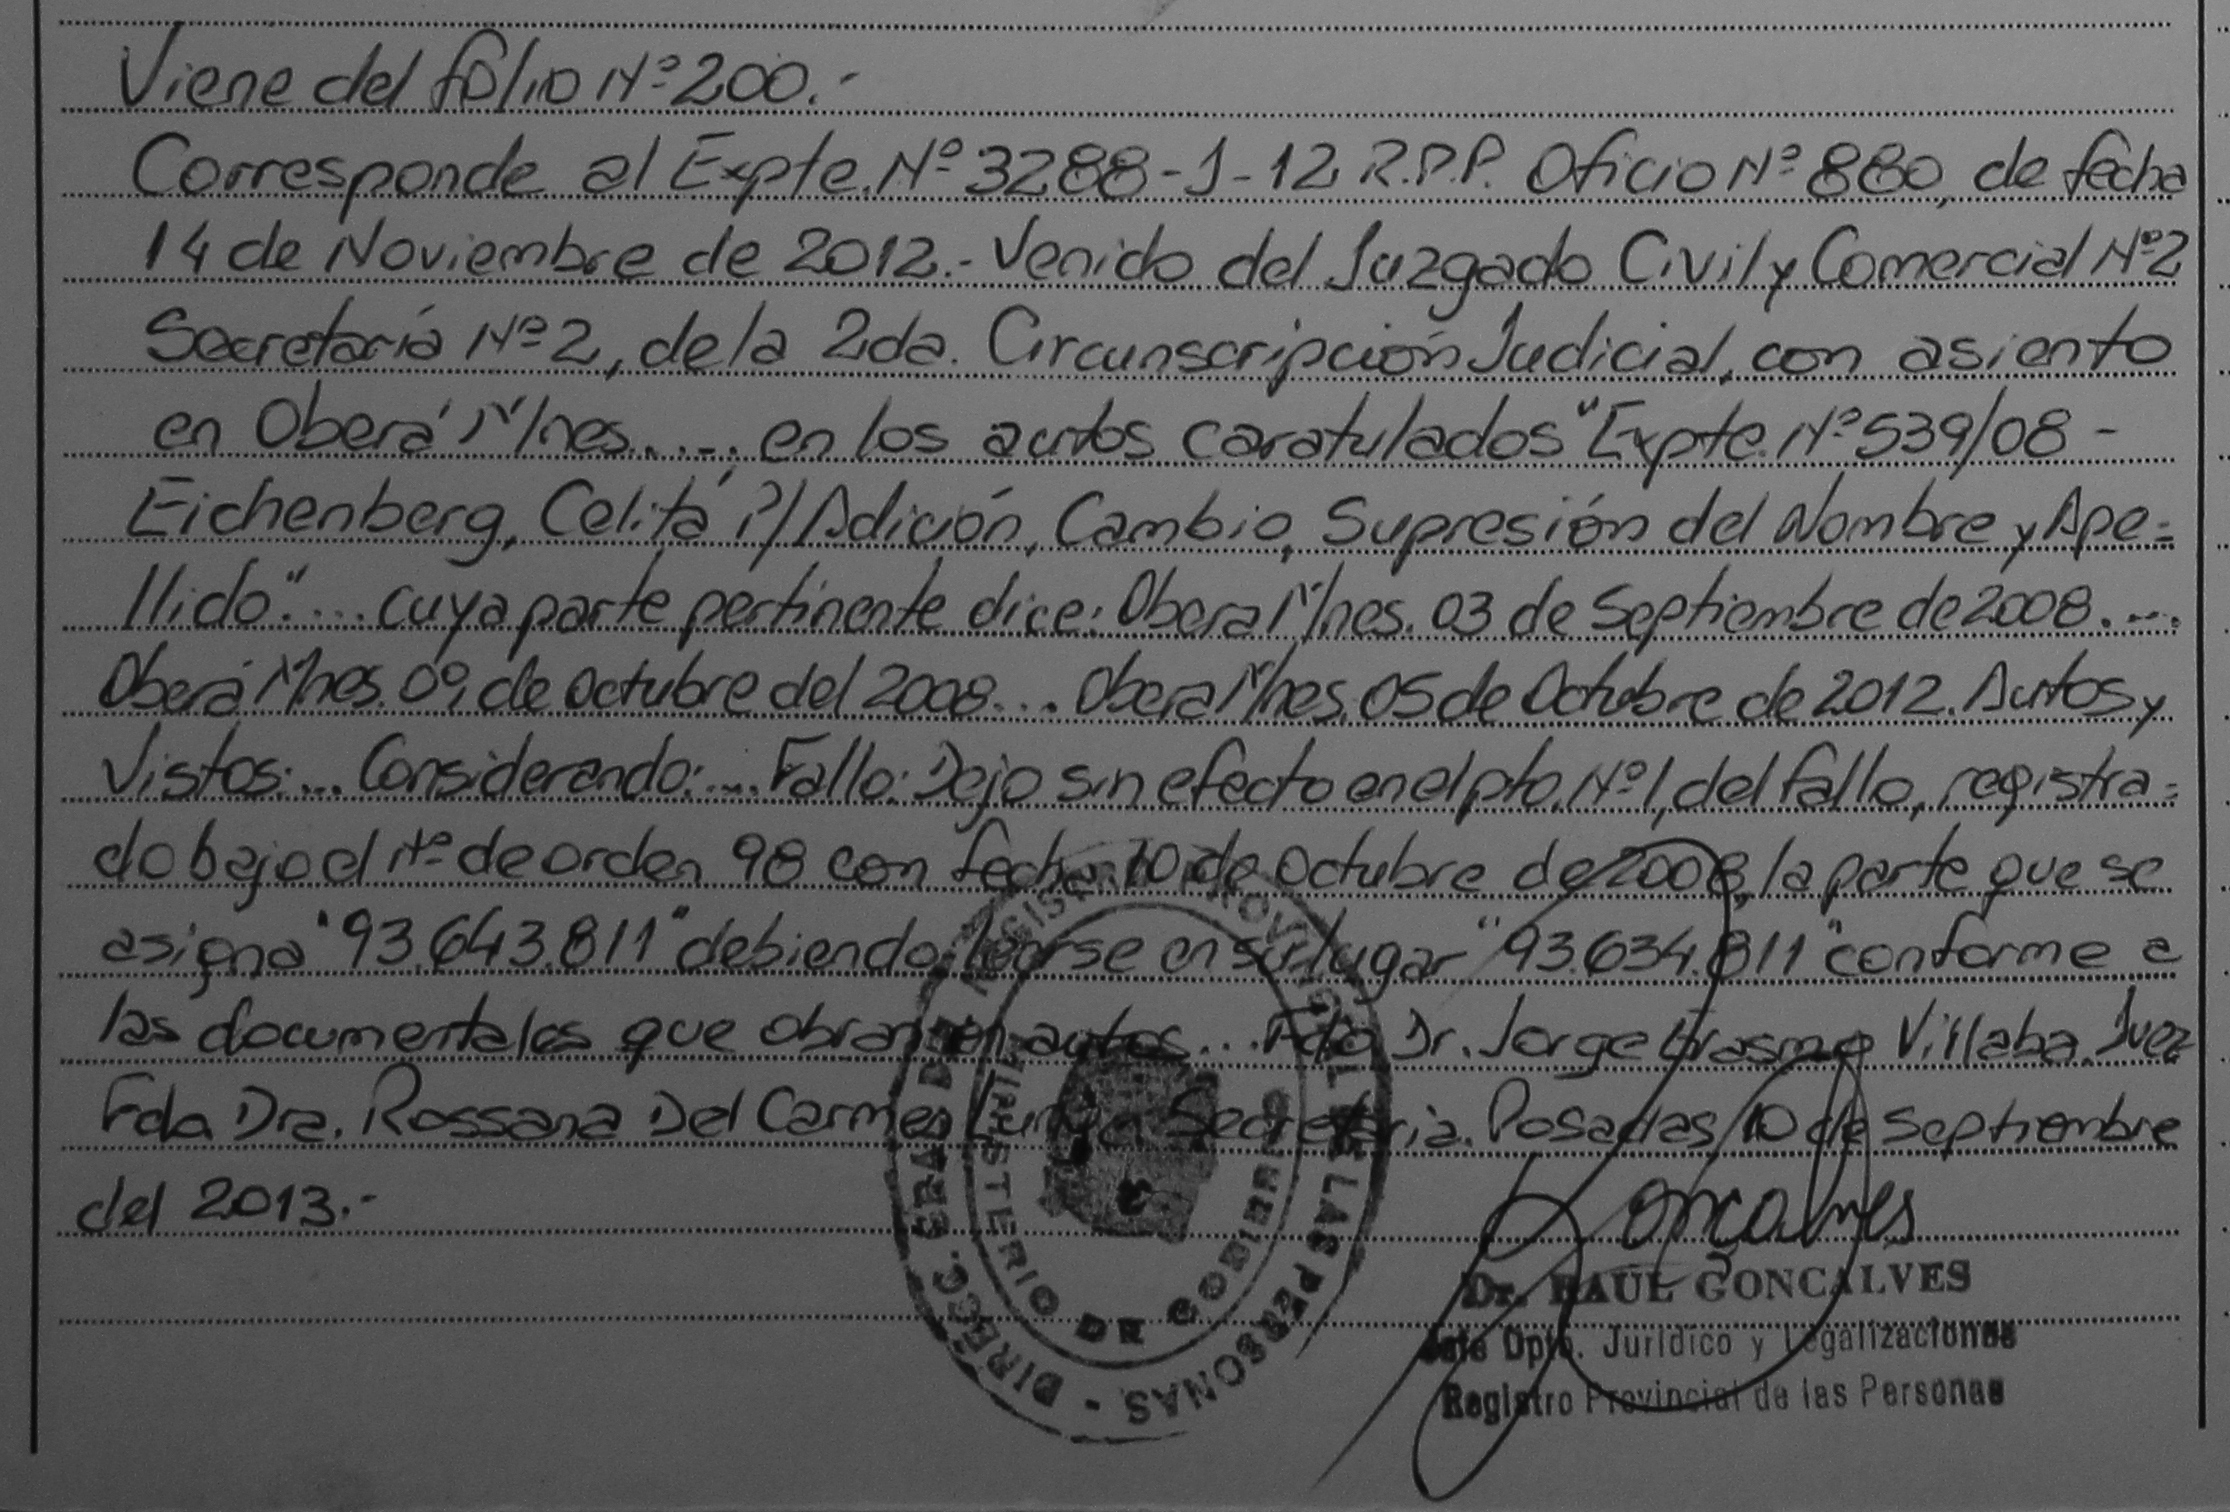 Viene del folio Nº 200.-
Corresponde al Expte. Nº 3288-J-12 R.P.P. Oficio Nº 880, de fecha
14 de Noviembre de 2012.- Venido del Juzgado Civil y Comercial Nº2
Secretaría Nº 2, de la 2da. Circunscripción Judicial, con asiento
en Oberá Mnes....., en los autos caratulados "Expte. Nº 539/08 -
Eichenberg, Celita P/ Adición, Cambio, Supresión del Nombre y Ape=
llido".... cuya parte pertinente dice: Obera Mnes. 03 de Septiembre de 2008....
Oberá Mnes. 09 de Octubre del 2008.... Obera Mnes. 05 de Octubre de 2012. Autos y
Vistos:... Considerando:.... Fallo: Dejo sin efecto en el pto. Nº 1, del fallo, registra=
do bajo el Nº de orden 98 con fecha 10 de Octubre de 2008, la parte que se
asigna "93.643.811" debiendo leerse en su lugar "93.634.811" conforme a
las documentales que obran en autos... Fdo Dr. Jorge Erasmo Villaba. Juez
Fda. Dra. Rossana Del Carmen Secretaria. Posadas 10 de Septiembre
del 2013.-
Goncalves
Dr. RAUL GONCALVES
Jefe Dpto. Jurídico y Legalizaciones
Registro Provincial de las Personas
REGISTRO PROVINCIAL DE LAS PERSONAS - DIRECC. GRAL.
MINISTERIO DE GOBIERNO